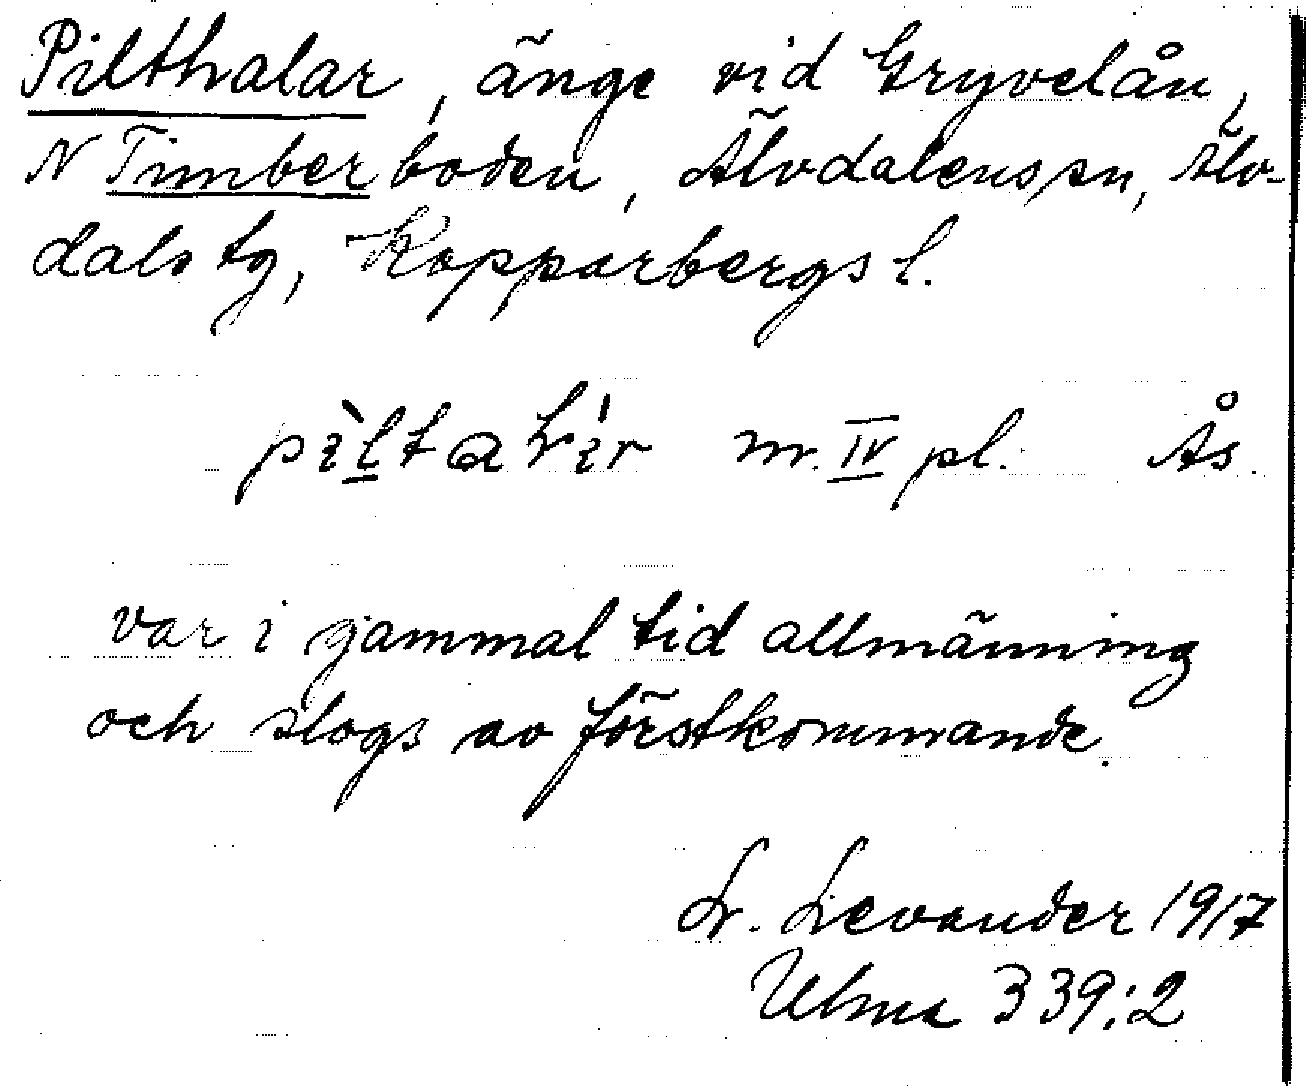 Pilthalar, änge vid Gryvelån,
N Timberboden, Älvdalens sn, Älv-
dals tg, Kopparbergs l.
m. IV pl. Ås.
var i gammal tid allmänning
och slogs av förstkommande.
L. Levander 1917
Ulma 339:2